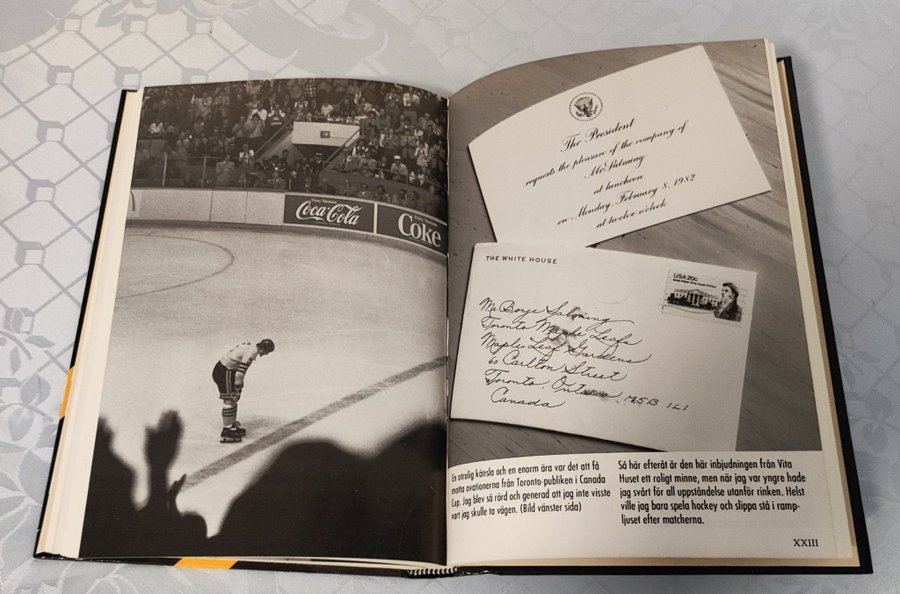 Coca-Cola
Coke
The President
requests the pleasure of the company of
Mr. Salming
at luncheon
on Monday, February 8, 1982
at twelve o'clock
THE WHITE HOUSE
USA 20c
Mr. Borje Salming
Toronto Maple Leafs
Maple Leaf Gardens
60 Carlton Street
Toronto, Ontario, M5B 1L1
Canada
En otrolig känsla och en enorm ära var det att få
motta ovationerna från Toronto-publiken i Canada
Cup. Jag blev så rörd och generad att jag inte visste
vart jag skulle ta vägen. (Bild vänster sida)
Så här efteråt är den här inbjudningen från Vita
Huset ett roligt minne, men när jag var yngre hade
jag svårt för all uppståndelse utanför rinken. Helst
ville jag bara spela hockey och slippa stå i ramp-
ljuset efter matcherna.
XXIII